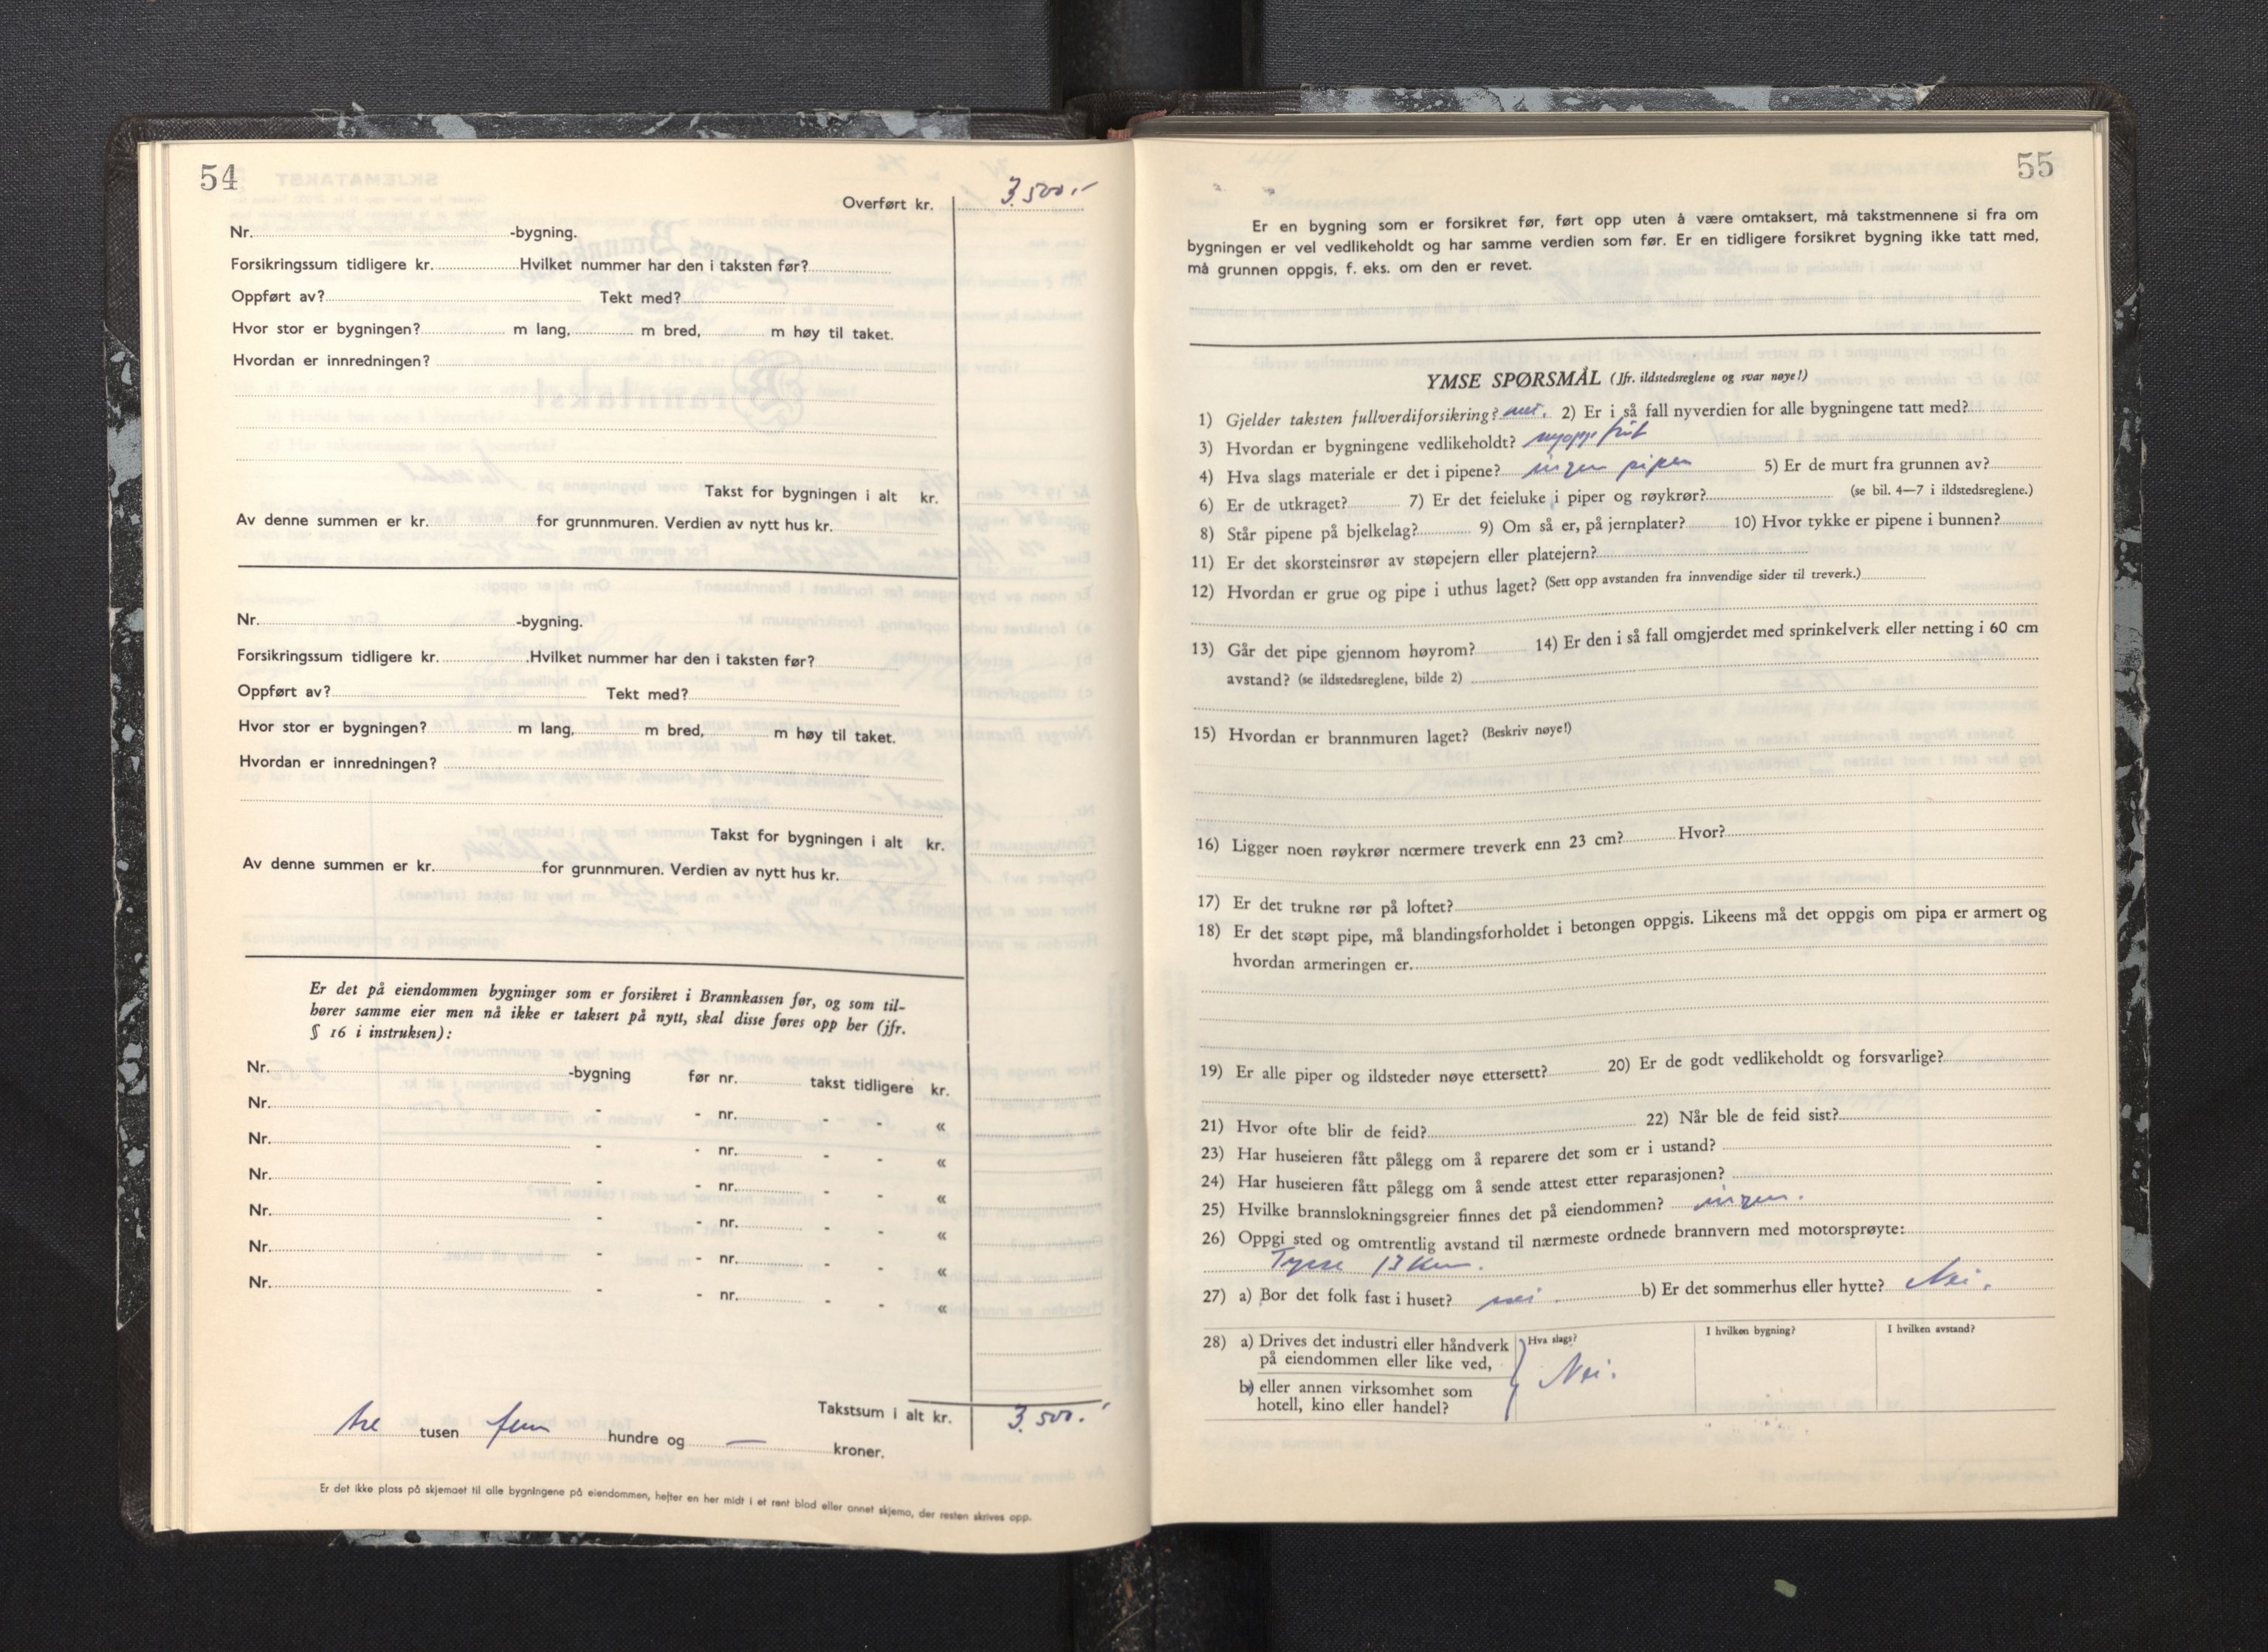 54
Overført kr. 3.500.-
Nr. -bygning.
Forsikringssum tidligere kr. Hvilket nummer har den i taksten før?
Oppført av? Tekt med?
Hvor stor er bygningen? m lang, m bred, m høy til taket.
Hvordan er innredningen?
Takst for bygningen i alt kr.
Av denne summen er kr. for grunnmuren. Verdien av nytt hus kr.
Nr. -bygning.
Forsikringssum tidligere kr. Hvilket nummer har den i taksten før?
Oppført av? Tekt med?
Hvor stor er bygningen? m lang, m bred, m høy til taket.
Hvordan er innredningen?
Takst for bygningen i alt kr.
Av denne summen er kr. for grunnmuren. Verdien av nytt hus kr.
Er det på eiendommen bygninger som er forsikret i Brannkassen før, og som til-
hører samme eier men nå ikke er taksert på nytt, skal disse føres opp her (jfr.
§ 16 i instruksen):
Nr. -bygning før nr. takst tidligere kr.
Nr. - - nr. - - «
Nr. - - nr. - - «
Nr. - - nr. - - «
Nr. - - nr. - - «
Nr. - - nr. - - «
Nr. - - nr. - - «
Takstsum i alt kr. 3.500.-
tre tusen fem hundre og — kroner.
Er det ikke plass på skjemaet til alle bygningene på eiendommen, hefter en her midt i et rent blad eller annet skjema, der resten skrives opp.
55
Er en bygning som er forsikret før, ført opp uten å være omtaksert, må takstmennene si fra om
bygningen er vel vedlikeholdt og har samme verdien som før. Er en tidligere forsikret bygning ikke tatt med,
må grunnen oppgis, f. eks. om den er revet.
YMSE SPØRSMÅL (Jfr. ildstedsreglene og svar nøye!)
1) Gjelder taksten fullverdiforsikring? nei. 2) Er i så fall nyverdien for alle bygningene tatt med?
3) Hvordan er bygningene vedlikeholdt? nyoppført
4) Hva slags materiale er det i pipene? ingen piper 5) Er de murt fra grunnen av?
6) Er de utkraget? 7) Er det feieluke i piper og røykrør? (se bil. 4—7 i ildstedsreglene.)
8) Står pipene på bjelkelag? 9) Om så er, på jernplater? 10) Hvor tykke er pipene i bunnen?
11) Er det skorsteinsrør av støpejern eller platejern?
12) Hvordan er grue og pipe i uthus laget? (Sett opp avstanden fra innvendige sider til treverk.)
13) Går det pipe gjennom høyrom? 14) Er den i så fall omgjerdet med sprinkelverk eller netting i 60 cm
avstand? (se ildstedsreglene, bilde 2)
15) Hvordan er brannmuren laget? (Beskriv nøye!)
16) Ligger noen røykrør nœrmere treverk enn 23 cm? Hvor?
17) Er det trukne rør på loftet?
18) Er det støpt pipe, må blandingsforholdet i betongen oppgis. Likeens må det oppgis om pipa er armert og
hvordan armeringen er.
19) Er alle piper og ildsteder nøye ettersett? 20) Er de godt vedlikeholdt og forsvarlige?
21) Hvor ofte blir de feid? 22) Når ble de feid sist?
23) Har huseieren fått pålegg om å reparere det som er i ustand?
24) Har huseieren fått pålegg om å sende attest etter reparasjonen?
25) Hvilke brannslokningsgreier finnes det på eiendommen? ingen.
26) Oppgi sted og omtrentlig avstand til nærmeste ordnede brannvern med motorsprøyte:
Tysse 13 km.
27) a) Bor det folk fast i huset? nei. b) Er det sommerhus eller hytte? Nei.
28) a) Drives det industri eller håndverk Hva slags? I hvilken bygning? I hvilken avstand?
på eiendommen eller like ved,
Nei.
b) eller annen virksomhet som
hotell, kino eller handel?